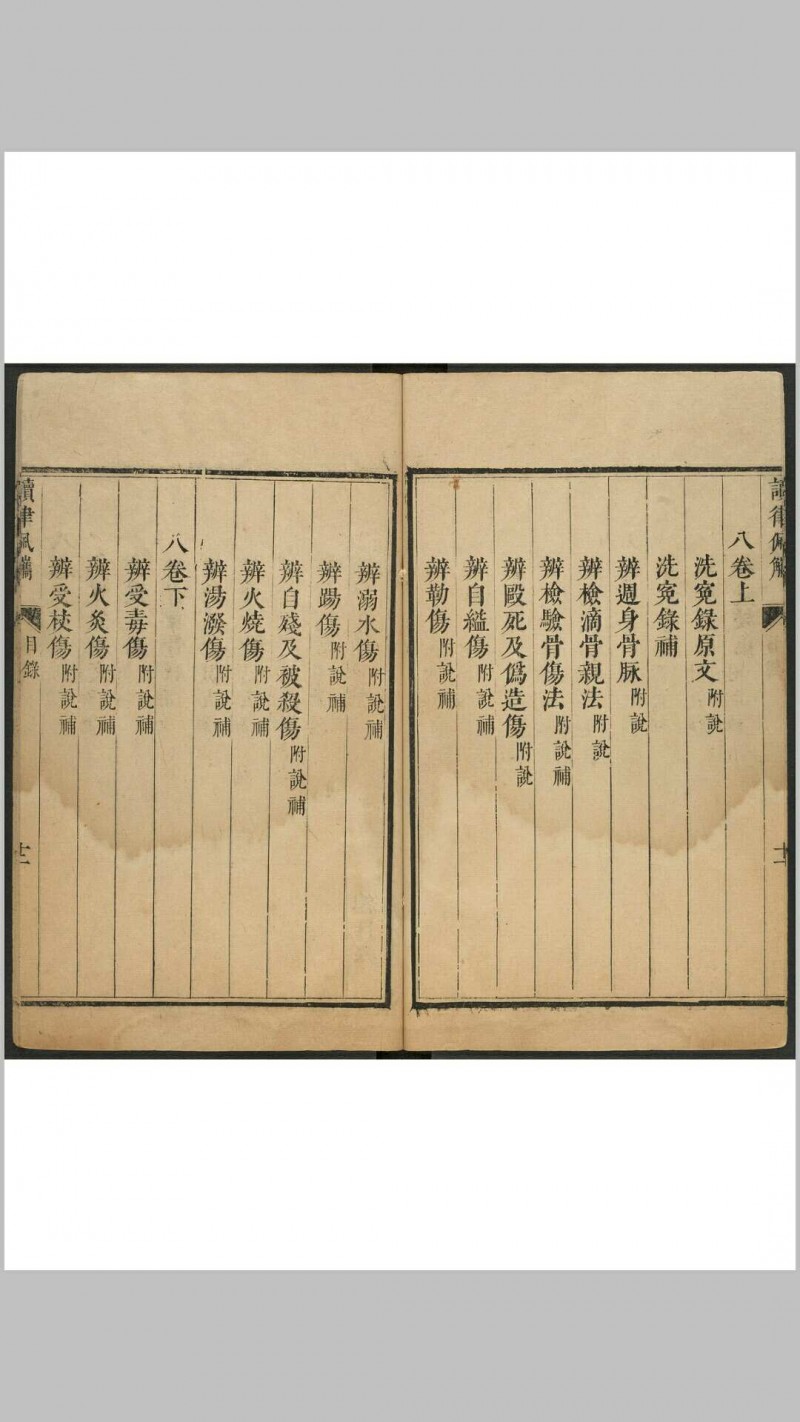 讀律佩觿
八卷上
洗寃錄原文附說
洗寃錄補
辨週身骨脉附說
辨檢滴骨親法附說
辨檢驗骨傷法附說補
辨毆死及僞造傷附說
辨自縊傷附說補
辨勒傷附說補
十一
辨溺水傷附說補
辨踢傷附說補
辨自殘及被殺傷附說補
辨火燒傷附說補
辨湯潑傷附說補
八卷下
辨受毒傷附說補
辨火灸傷附說補
辨受杖傷附說補
讀律佩觿
目錄
十二